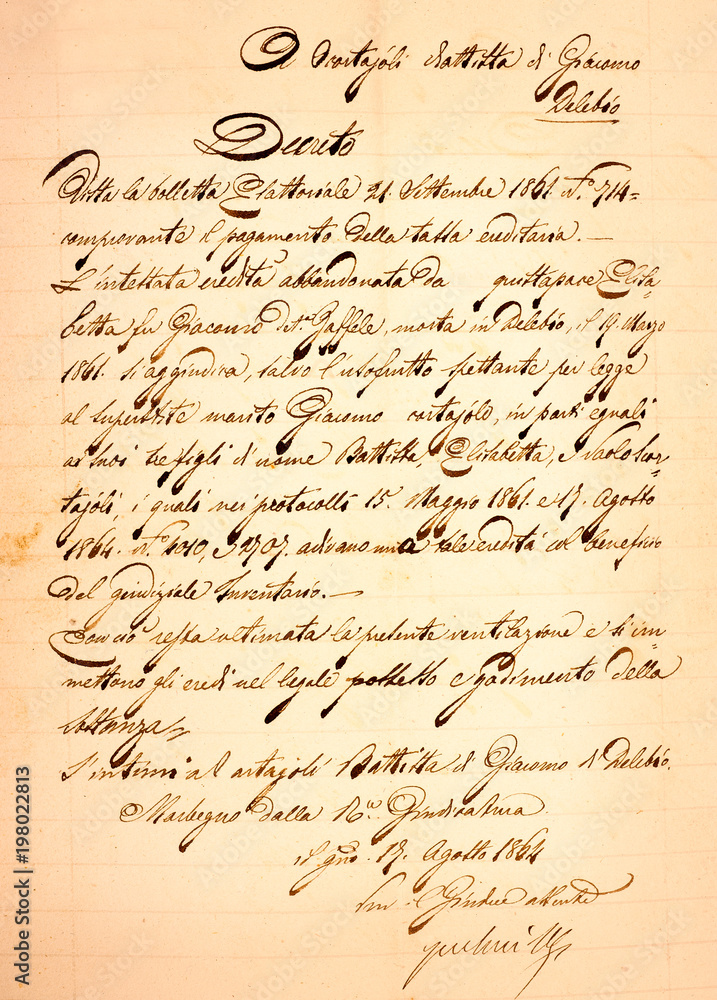 A Scortajóli Battista di Giacomo
Delebio
Decreto
Vista la bolletta Esattoriale 21. Settembre 1861. N.º 714=
comprovante il pagamento della tassa ereditaria.—
L'intestata eredità abbandonata da Elisa=
betta fu Giacomo , morta in Delebio, il 19. Marzo
1861. si aggiudica, salvo l'usofrutto spettante per legge
al superstite marito Giacomo cortajólo, in parti eguali
ai suoi tre figli di nome Battista, Elisabetta, e Paolo Scor=
tajóli, i quali nei protocolli 15. Maggio 1861. e 17. Agosto
1864. N.º 4010, e 2707. adivano una tale eredità col beneficio
del giudiziale Inventario.—
Con ciò resta ultimata la presente ventilazione e si im=
mettono gli eredi nel legale possesso e godimento della
Sostanza=
S'intimi al artajoli Battista di Giacomo di Delebio.
Morbegno dalla Giudicatura
il 17. Agosto 1864
Giudice
Adobe Stock | #198022813
Adobe Stock